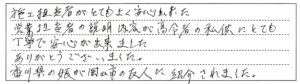 施工担当者がとてもよく安心出来た
営業担当者の説明内容が高令者の私供にとても
丁寧で安心が出来ました
ありがとうございました。
香川県の娘が岡山市の友人に紹介されました。